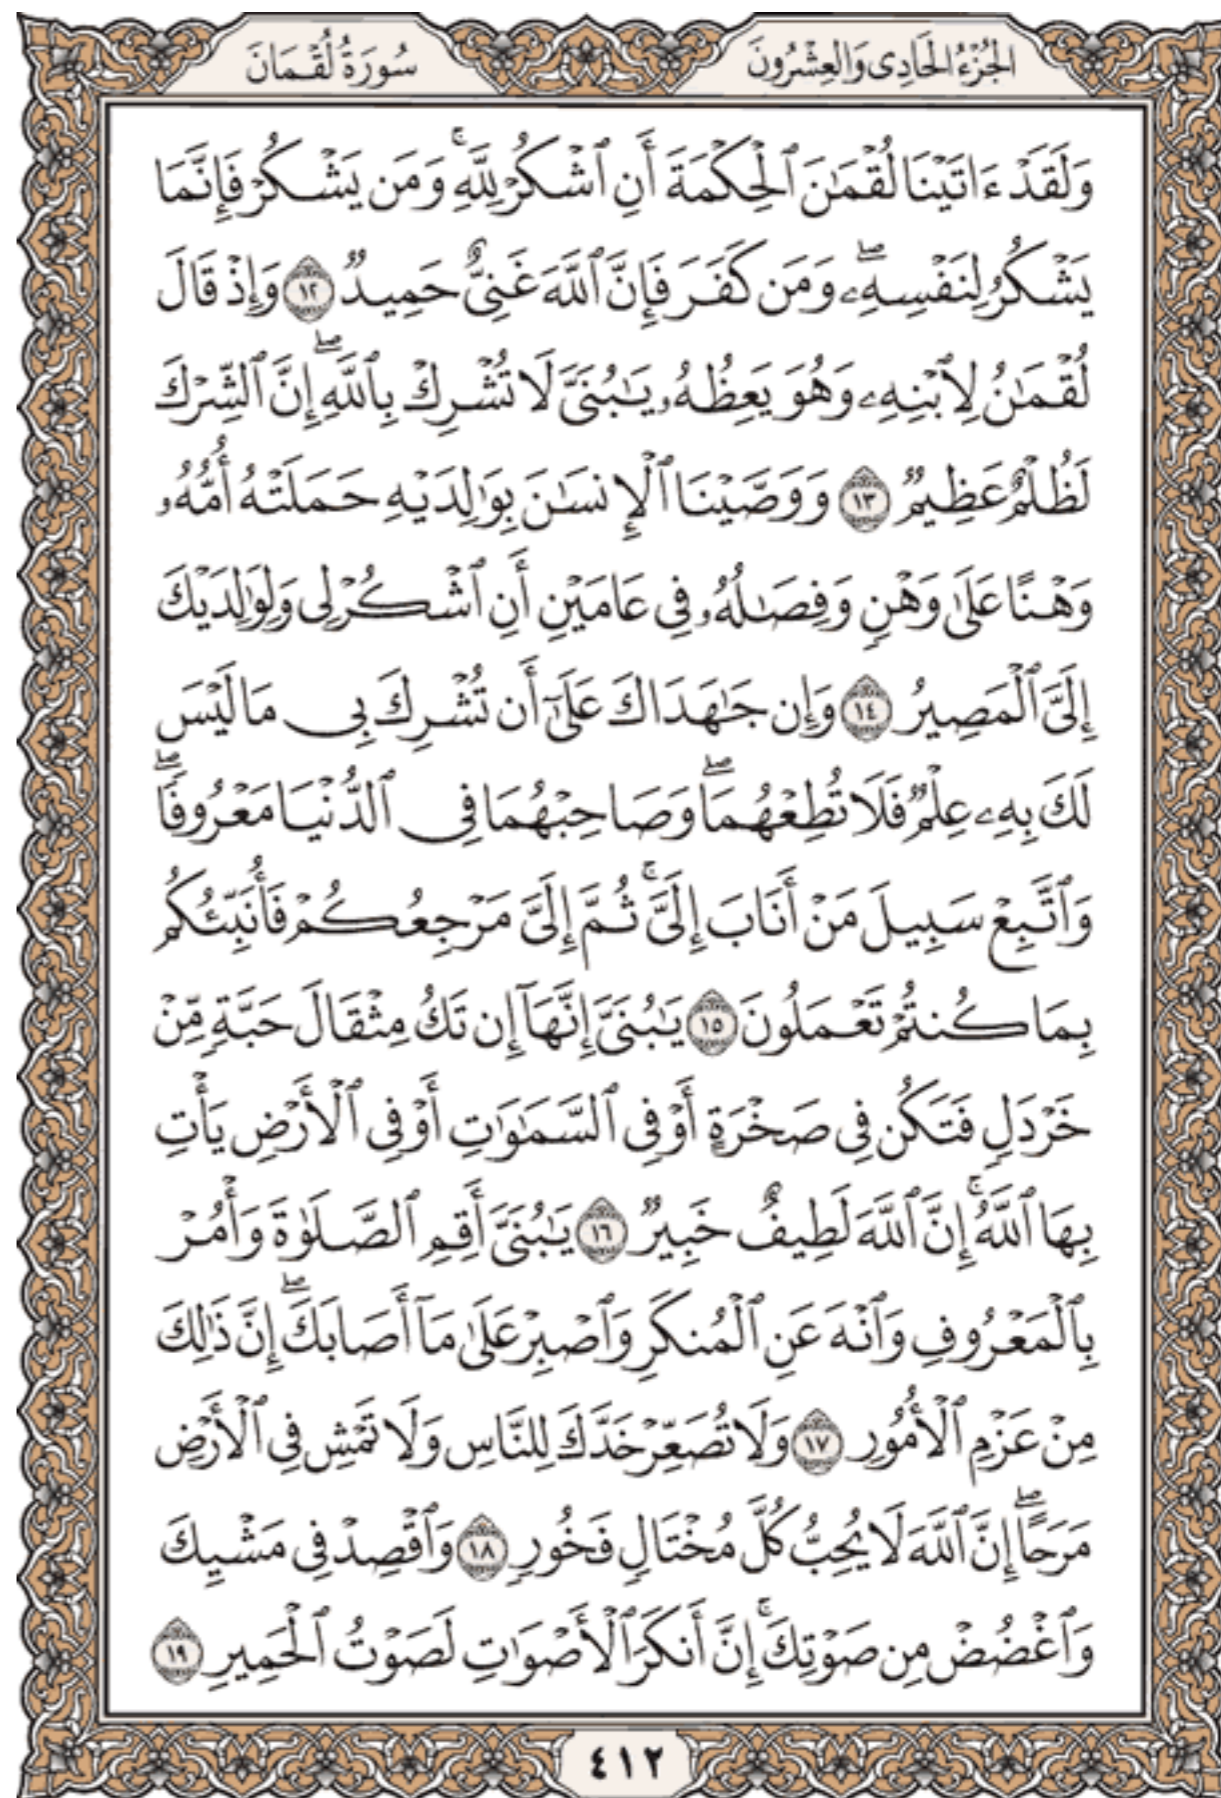 الجُزْءُ الحَادِى وَالعِشْرُونَ
سُورَةُ لُقْمَانَ
وَلَقَدْ ءَاتَيْنَا لُقْمَٰنَ ٱلْحِكْمَةَ أَنِ ٱشْكُرْ لِلَّهِ ۚ وَمَن يَشْكُرْ فَإِنَّمَا
يَشْكُرُ لِنَفْسِهِۦ ۖ وَمَن كَفَرَ فَإِنَّ ٱللَّهَ غَنِىٌّ حَمِيدٌ ١٢ وَإِذْ قَالَ
لُقْمَٰنُ لِٱبْنِهِۦ وَهُوَ يَعِظُهُۥ يَٰبُنَىَّ لَا تُشْرِكْ بِٱللَّهِ ۖ إِنَّ ٱلشِّرْكَ
لَظُلْمٌ عَظِيمٌ ١٣ وَوَصَّيْنَا ٱلْإِنسَٰنَ بِوَٰلِدَيْهِ حَمَلَتْهُ أُمُّهُۥ
وَهْنًا عَلَىٰ وَهْنٍ وَفِصَٰلُهُۥ فِى عَامَيْنِ أَنِ ٱشْكُرْ لِى وَلِوَٰلِدَيْكَ
إِلَىَّ ٱلْمَصِيرُ ١٤ وَإِن جَٰهَدَاكَ عَلَىٰٓ أَن تُشْرِكَ بِى مَا لَيْسَ
لَكَ بِهِۦ عِلْمٌ فَلَا تُطِعْهُمَا ۖ وَصَاحِبْهُمَا فِى ٱلدُّنْيَا مَعْرُوفًا ۖ
وَٱتَّبِعْ سَبِيلَ مَنْ أَنَابَ إِلَىَّ ۚ ثُمَّ إِلَىَّ مَرْجِعُكُمْ فَأُنَبِّئُكُم
بِمَا كُنتُمْ تَعْمَلُونَ ١٥ يَٰبُنَىَّ إِنَّهَآ إِن تَكُ مِثْقَالَ حَبَّةٍ مِّنْ
خَرْدَلٍ فَتَكُن فِى صَخْرَةٍ أَوْ فِى ٱلسَّمَٰوَٰتِ أَوْ فِى ٱلْأَرْضِ يَأْتِ
بِهَا ٱللَّهُ ۚ إِنَّ ٱللَّهَ لَطِيفٌ خَبِيرٌ ١٦ يَٰبُنَىَّ أَقِمِ ٱلصَّلَوٰةَ وَأْمُرْ
بِٱلْمَعْرُوفِ وَٱنْهَ عَنِ ٱلْمُنكَرِ وَٱصْبِرْ عَلَىٰ مَآ أَصَابَكَ ۖ إِنَّ ذَٰلِكَ
مِنْ عَزْمِ ٱلْأُمُورِ ١٧ وَلَا تُصَعِّرْ خَدَّكَ لِلنَّاسِ وَلَا تَمْشِ فِى ٱلْأَرْضِ
مَرَحًا ۖ إِنَّ ٱللَّهَ لَا يُحِبُّ كُلَّ مُخْتَالٍ فَخُورٍ ١٨ وَٱقْصِدْ فِى مَشْيِكَ
وَٱغْضُضْ مِن صَوْتِكَ ۚ إِنَّ أَنكَرَ ٱلْأَصْوَٰتِ لَصَوْتُ ٱلْحَمِيرِ ١٩
٤١٢